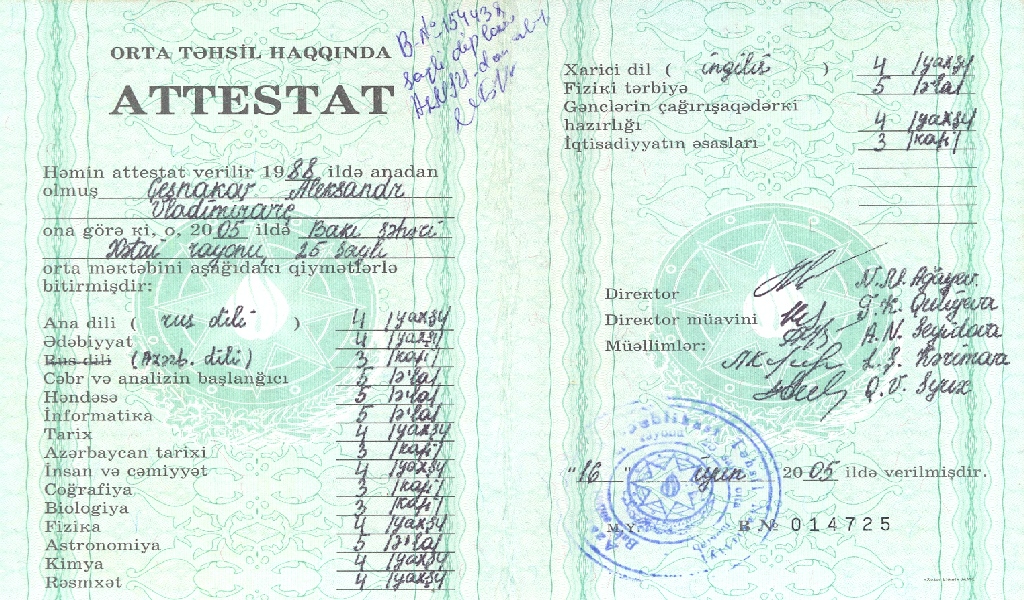 ORTA TƏHSİL HAQQINDA
ATTESTAT
B-№ 154438
saylı diplom
Həmin attestat verilir 1988 ildə anadan
olmuş Çesnakov Aleksandr
Vladimiroviç
ona görə ki, o, 2005 ildə Bakı şəhəri
Xətai rayonu 25 saylı
orta məktəbini aşağıdakı qiymətlərlə
bitirmişdir:
Ana dili ( rus dili ) 4 /yaxşı/
Ədəbiyyat 4 /yaxşı/
Rus dili (Azərb. dili) 3 /kafi/
Cəbr və analizin başlanğıcı 5 /ə'la/
Həndəsə 5 /ə'la/
İnformatika 5 /ə'la/
Tarix 4 /yaxşı/
Azərbaycan tarixi 3 /kafi/
İnsan və cəmiyyət 4 /yaxşı/
Coğrafiya 3 /kafi/
Biologiya 3 /kafi/
Fizika 4 /yaxşı/
Astronomiya 5 /ə'la/
Kimya 4 /yaxşı/
Rəsmxət 4 /yaxşı/
Xarici dil ( ingilis ) 4 /yaxşı/
Fiziki tərbiyə 5 /ə'la/
Gənclərin çağırışaqədərki
hazırlığı 4 /yaxşı/
İqtisadiyyatın əsasları 3 /kafi/
Direktor N.N. Ağayev
Direktor müavini T.K. Quliyeva
Müəllimlər: A.N. Seyidova
L.Ş. Kərimova
Q.V. Syux
"16" iyun 2005 ildə verilmişdir.
M.Y. B № 014725